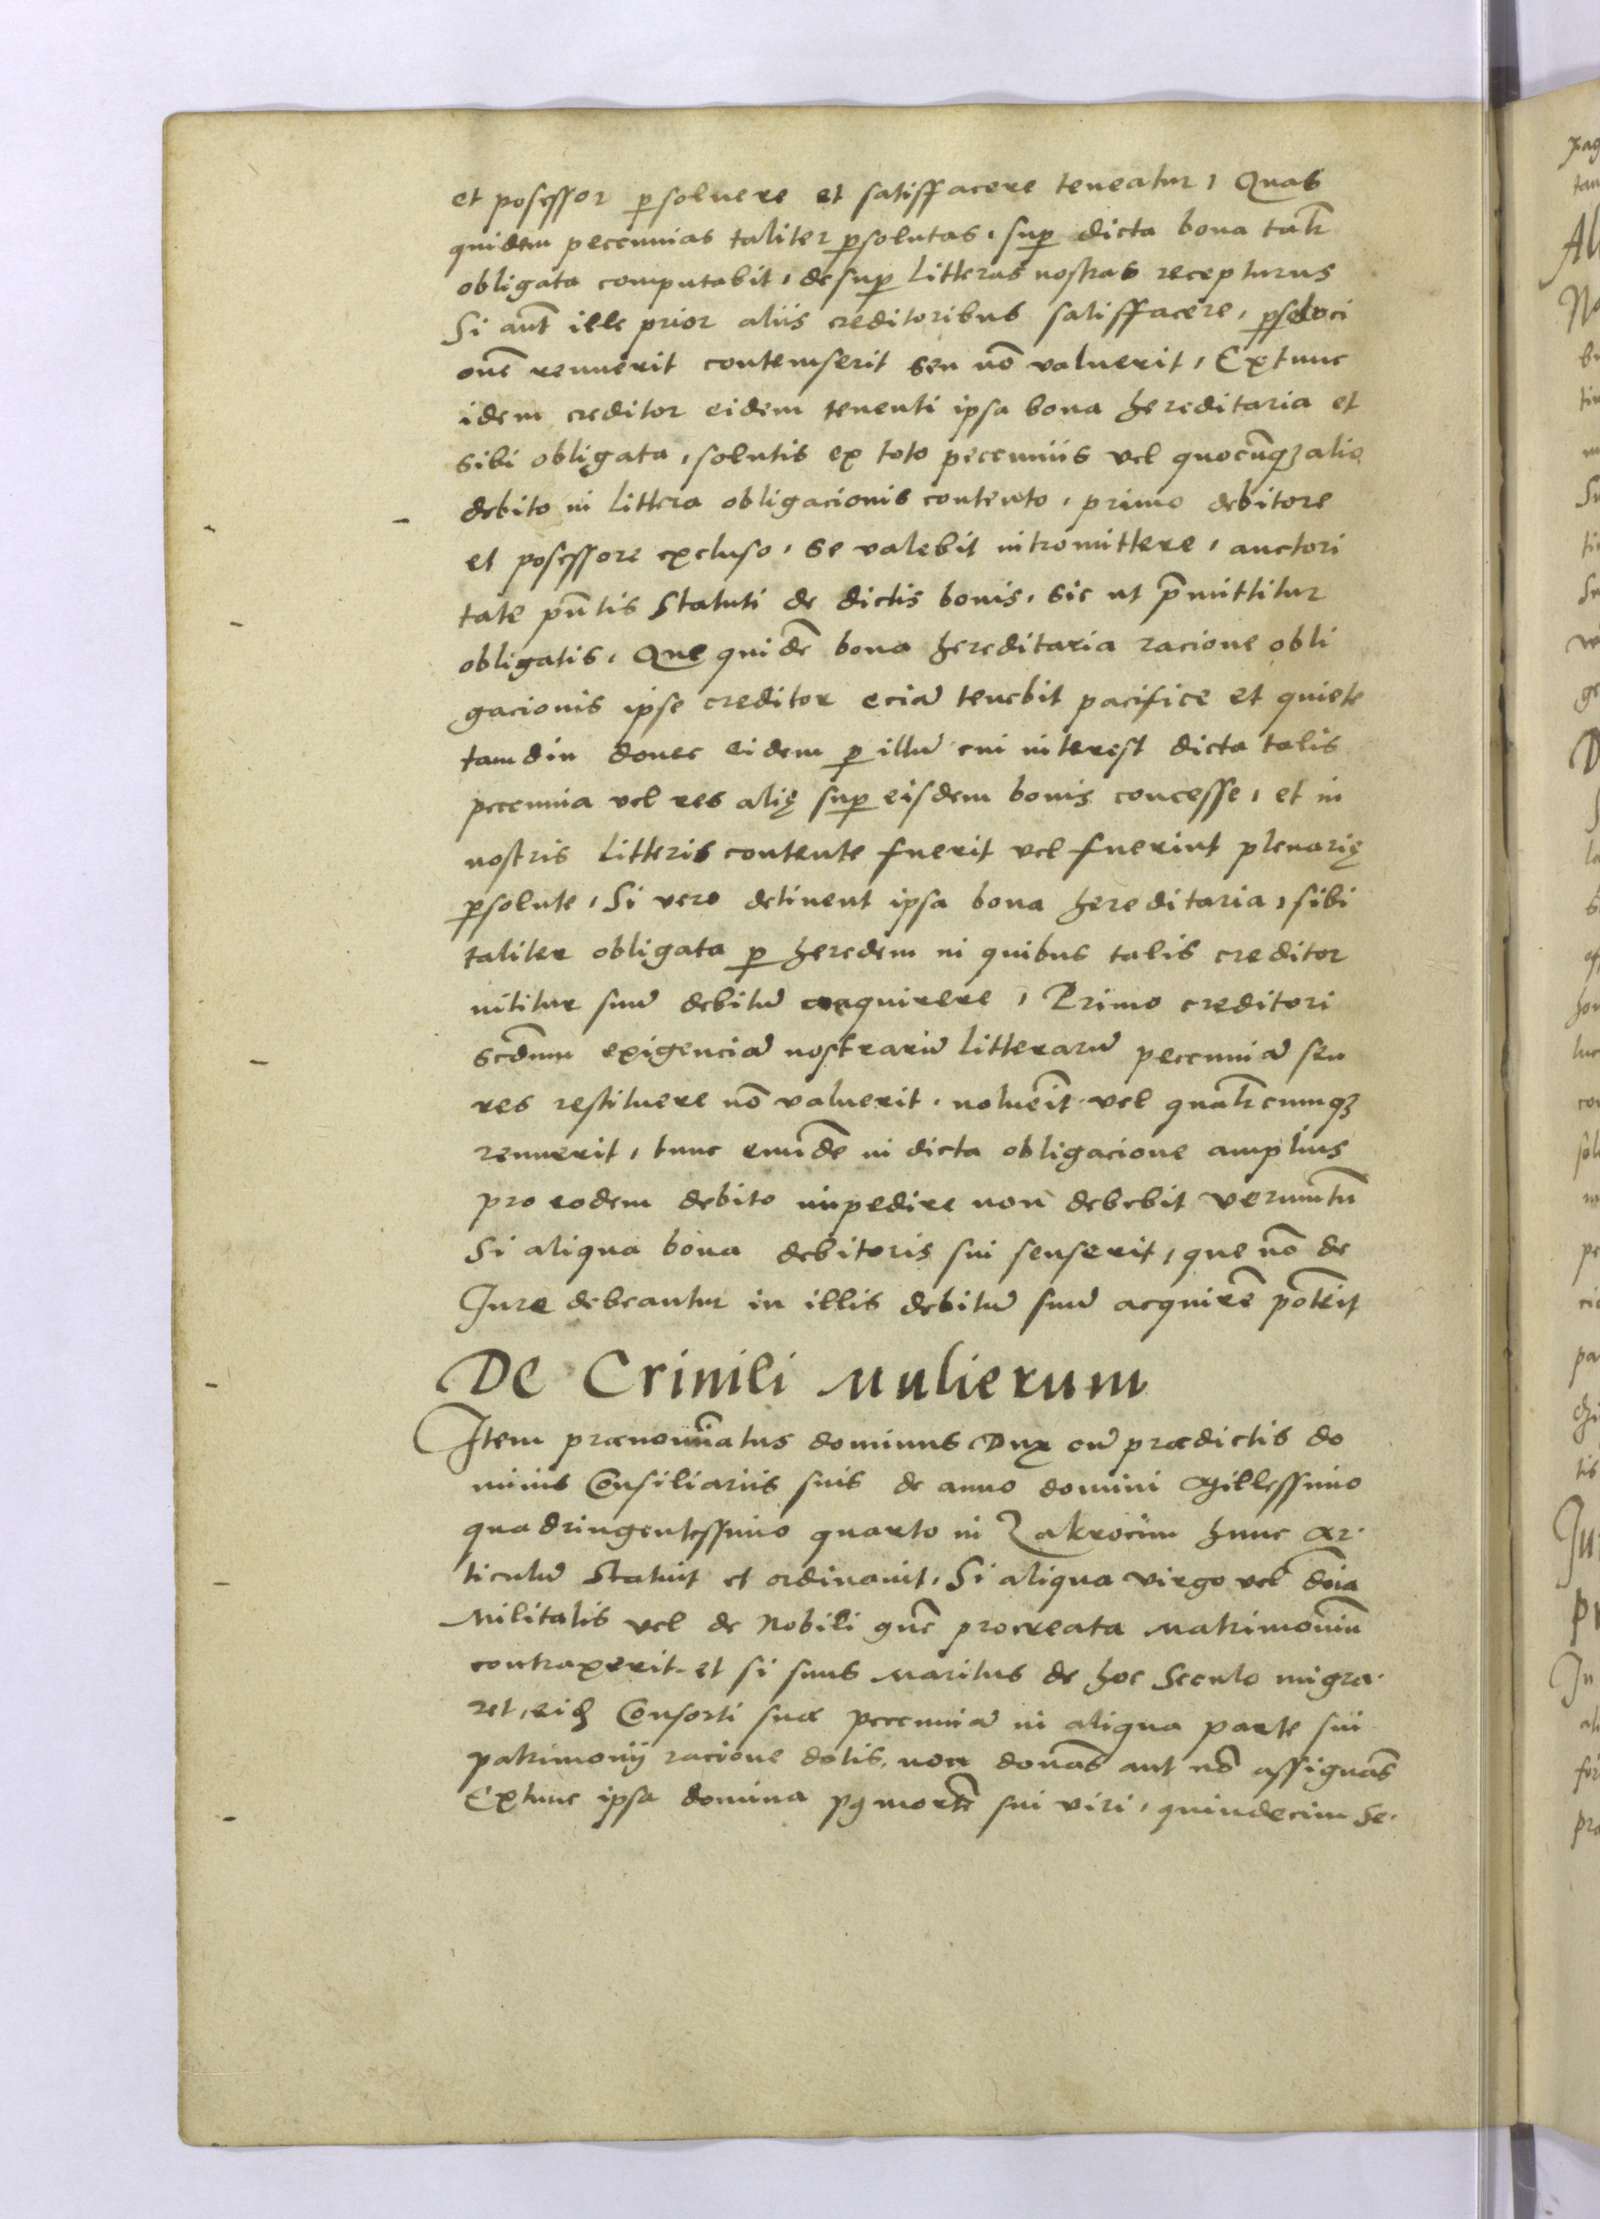 et posessor psoluere et satisffacere teneatur, Quas
quidem peccunias taliter psolutas, sup dicta bona talr
obligata computabit, desup litteras nostras recepturus
Si aut ille prior aliis creditoribus satisffacere, psoluci
one rennuerit contemserit seu no valuerit, Extunc
idem creditor eidem tenenti ipsa bona hereditaria et
sibi obligata, solutis ex toto peccuniis vel quocunqz alio
debito in littera obligacionis contento, primo debitore
et posessore excluso, se valebit intromittere, auctori
tate pntis Statuti de dictis bonis, sic ut pmittitur
obligatis, Que quide bona hereditaria racione obli
gacionis ipse creditor ecia tenebit pacifice et quiete
tamdiu donec eidem p illu cui interest dicta talis
peccunia vel res alię sup eisdem bonis concesse, et in
nostris litteris contente fuerit vel fuerint plenarię
psolute, Si vero detinent ipsa bona hereditaria, sibi
taliter obligata p heredem in quibus talis creditor
nititur suu debitu conquirere, Primo creditori
scdmm exigencia nostraru litteraru peccunia seu
res restituere no valuerit, noluerit vel qualrcumqz
rennuerit, tunc eunde in dicta obligacione amplius
pro eodem debito impedire non debebit verumtn
Si aliqua bona debitoris sui senserit, que no de
Jure debeantur in illis debitu suu acquire poterit
De Crinili Mulierum
Item prænominatus dominus Dux cu prædictis do
minis Consiliariis suis de anno domini Millessimo
quadringentessimo quarto in Zakrocim hunc Ar-
ticulu Statuit et ordinauit, Si aliqua virgo vel dna
Militalis vel de Nobili gne procreata Matrimoniu
contraxerit et si suus Maritus de hoc Seculo migra-
ret, eid Consorti suæ peccunia in aliqua parte sui
patrimonij racione dotis, non donas aut no assignas
Extunc ipsa domina p9 morte sui viri, quindecim Se-